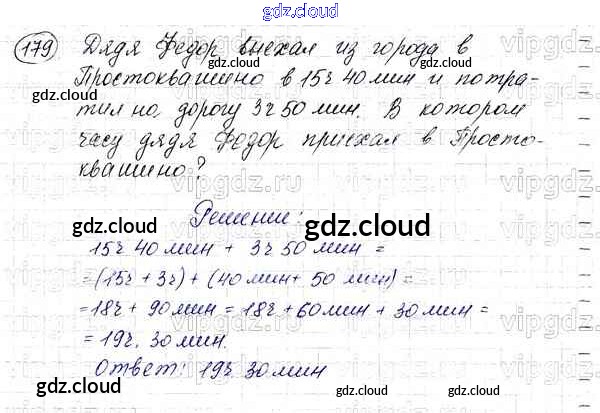 gdz.cloud
179 Дядя Федор выехал из города в
Простоквашино в 15ч 40 мин и потра-
тил на дорогу 3ч 50 мин. В котором
часу дядя Федор приехал в Просто-
квашино?
Решение:
15ч 40 мин + 3ч 50 мин =
=(15ч + 3ч) + (40 мин + 50 мин) =
=18ч + 90 мин = 18ч + 60 мин + 30 мин =
= 19ч. 30 мин.
Ответ: 19ч 30 мин
gdz.cloud
gdz.cloud
gdz.cloud
gdz.cloud
gdz.cloud
gdz.cloud
gdz.cloud
gdz.cloud
gdz.cloud
gdz.cloud
vipgdz.com
vipgdz.com
vipgdz.com